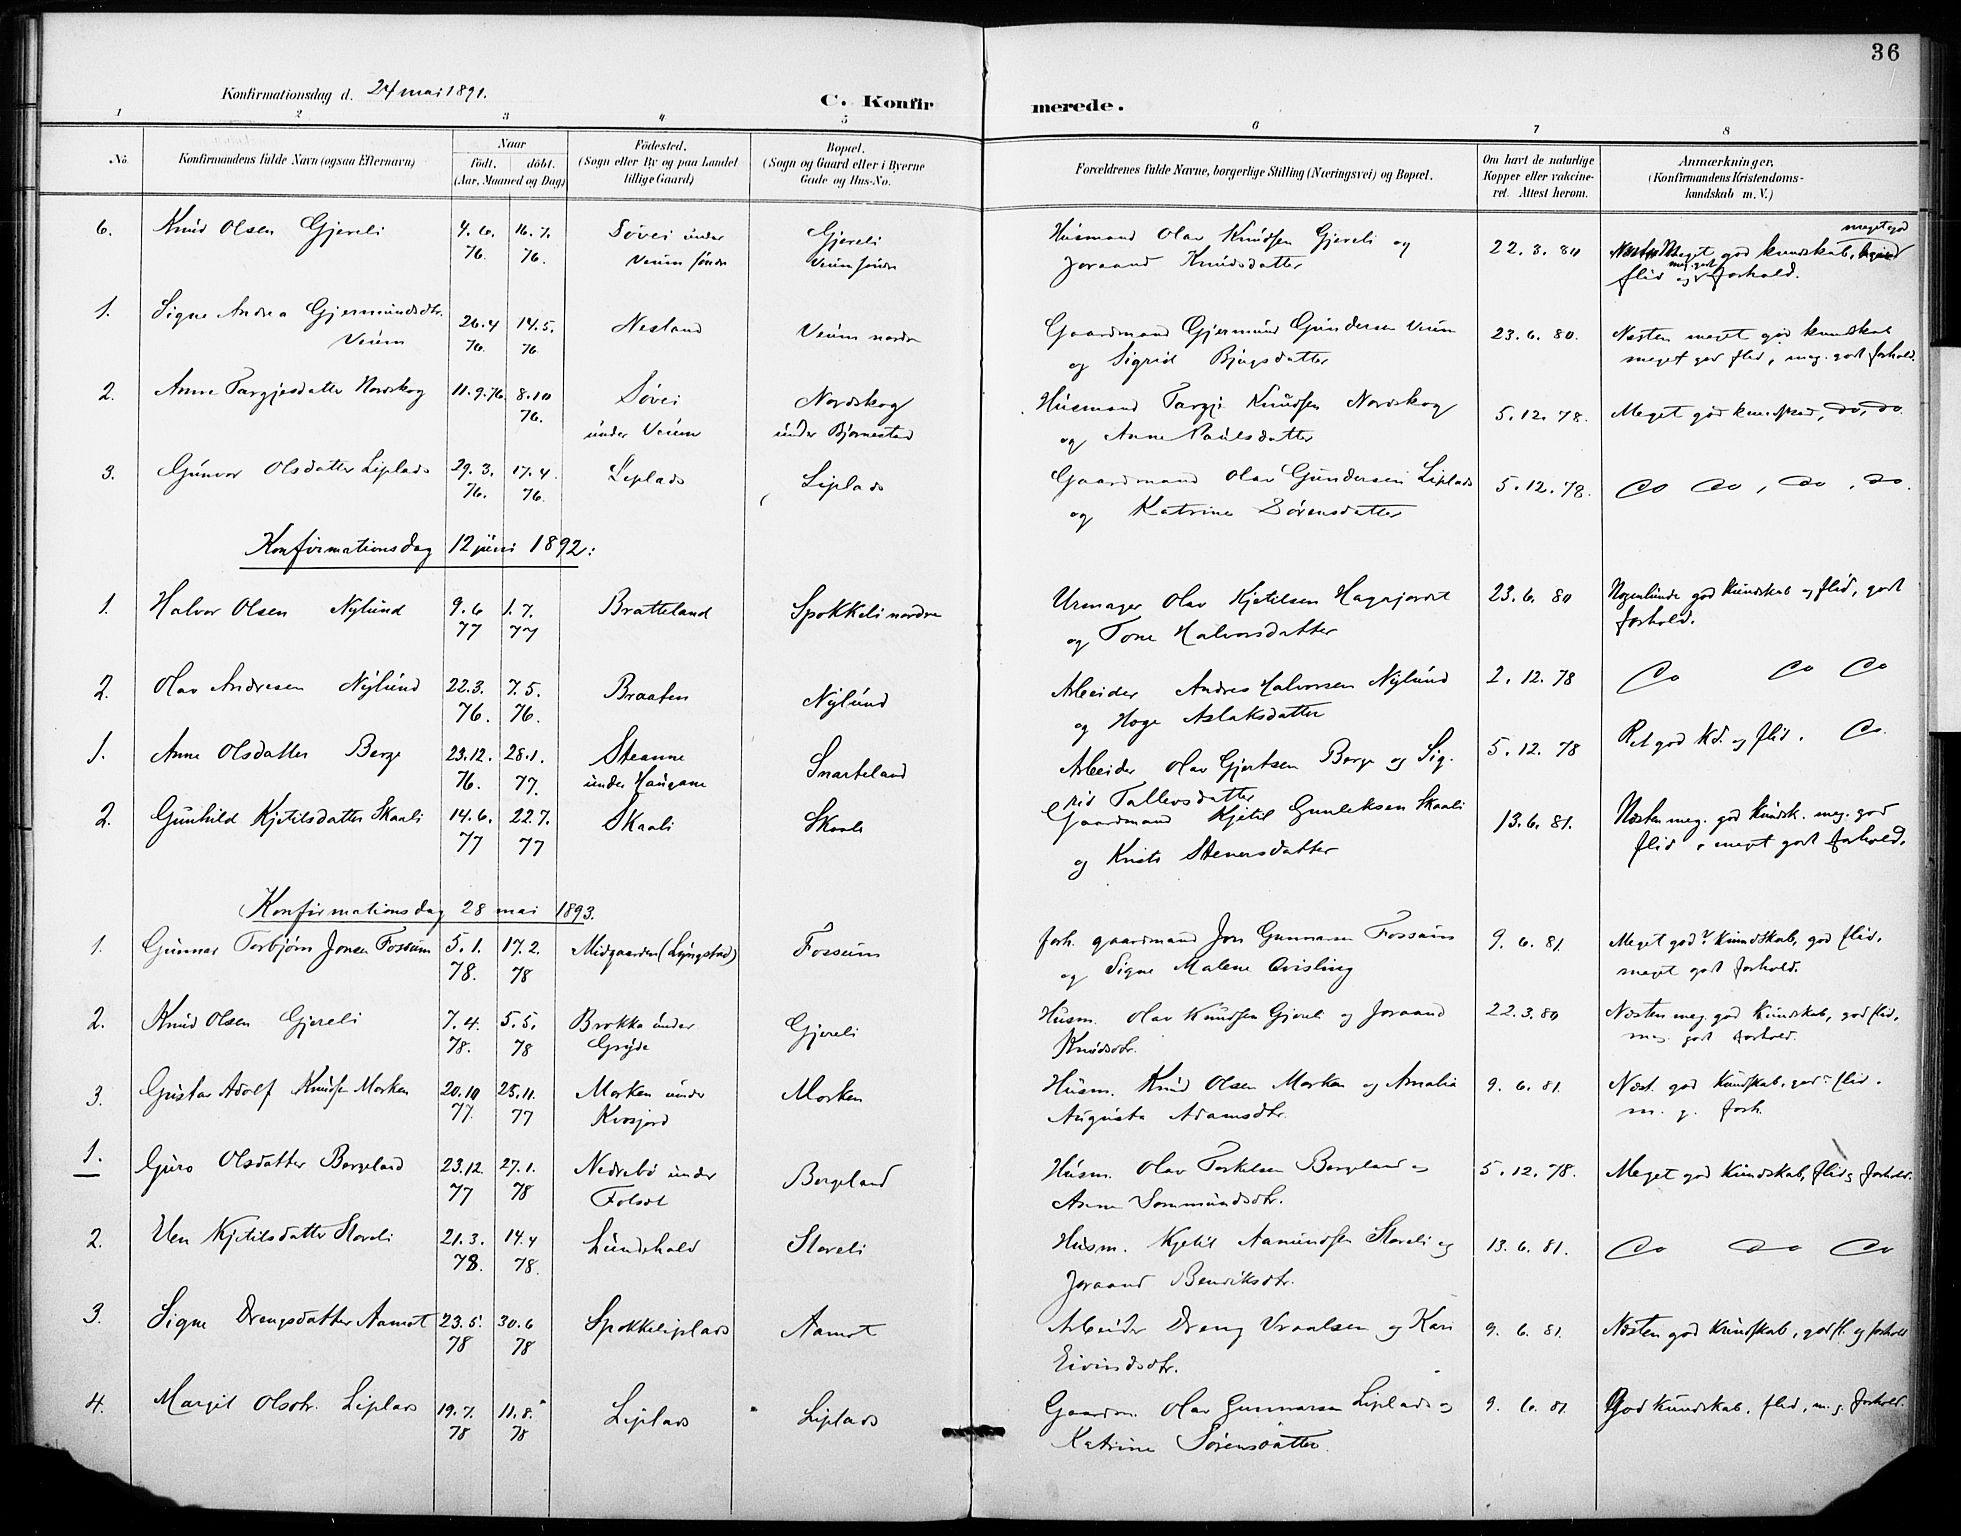 36
Konfirmationsdag d. 24 mai 1891.
C. Konfir merede.
1 2 3 4 5 6 7 8
No. Konfirmandens fulde Navn (ogsaa Efternavn) Naar født. døbt. (Aar, Maaned og Dag) Fødested. (Sogn eller By og paa Landet tillige Gaard) Bopæl. (Sogn og Gaard eller i Byerne Gade og Hus-No. Forældrenes fulde Navne, borgerlige Stilling (Næringsvei) og Bopæl. Om havt de naturlige Kopper eller vakcineret. Attest herom. Anmærkninger, (Konfirmandens Kristendomskundskab m. V.)
6. Knud Olsen Gjereli 4.6. 76. 16.7. 76. Søvei under Veum søndre Gjereli Veum søndre Husmand Olav Knudsen Gjereli og Joraand Knudsdatter 22.3.80 Meget god kundskab, meget god flid og meg. godt forhold.
1. Signe Andrea Gjermundsdtr. Veum 26.4 76. 14.5. 76. Nesland Veum nordre Gaardmand Gjermund Gundersen Veum og Sigrid Bjugsdatter 23.6.80. Næsten meget god kundskab meget god flid, meg. godt forhold.
2. Anne Targjesdatter Nordskog 11.9.76 8.10 76. Søvei under Veum Nordskog under Bjørnestad Husmand Targje Knudsen Nordskog og Anne Paulsdatter 5.12.78. Meget god kundskab, do, do.
3. Gunvor Olsdatter Liplads 29.3. 76. 17.4. 76. Liplads Liplads Gaardmand Olav Gundersen Liplads og Katrine Sørensdatter 5.12.78. do do, do, do.
Konfirmationsdag 12 juni 1892:
1. Halvor Olsen Nylund 9.6 77 1.7. 77 Bratteland Spokkeli nordre Urmager Olav Kjetilsen Hagajordet og Tone Halvorsdatter 23.6.80 Nogenlunde god kundskab og flid, godt forhold.
2. Olav Andresen Nylund 22.3. 76. 7.5. 76. Braaten Nylund Arbeider Andres Halvorsen Nylund og Hæge Aslaksdatter 2.12.78 do do do
1. Anne Olsdatter Berge 23.12. 76. 28.1. 77. Steanne under Haugane Snarteland Arbeider Olav Gjertsen Berge og Sigrid Tallevsdatter 5.12.78 Ret god kd. og flid. do.
2. Gunhild Kjetilsdatter Skaali 14.6. 77 22.7. 77 Skaali Skaali Gaardmand Kjetil Gunleksen Skaali og Kristi Stenersdatter 13.6.81. Næsten meg. god kundsk. meg. god flid, meget godt forhold.
Konfirmationsdag 28 mai 1893.
1. Gunnar Torbjørn Jonsen Fossum 5.1. 78. 17.2. 78 Midgaarden (Lyngstad) Fossum forh. gaardmand Jon Gunnarsen Fossum og Signe Malene Qvisling 9.6.81. Meget god kundskab, god flid, meget godt forhold.
2. Knud Olsen Gjereli 7.4. 78. 5.5. 78 Brokka under Grøde Gjereli Husm. Olav Knudsen Gjereli og Joraand Knudsdtr. 22.3.80 Næsten meg. god kundskab, god flid, meg. godt forhold.
3. Gustav Adolf Knudsen Morken 20.10 77. 25.11. 77 Morken under Kvosjord Morken Husm. Knud Olsen Morken og Amalia Augusta Adamsdtr. 9.6.81. Næst. god kundskab, god flid. m. g. forh.
1. Guro Olsdatter Bergeland 23.12. 77 27.1. 78 Nedrebø under Folsæt Bergeland Husm. Olav Torkelsen Bergeland og Anne Sommundsdtr. 5.12.78. Meget god kundskab, flid og forhold.
2. Kjetilsdatter Storeli 21.3. 78. 14.4 78. Lundehald Storeli Husm. Kjetil Aamundsen Storeli og Joraand Benriksdtr. 13.6.81. do do do
3. Signe Drengsdatter Aamot 23.5. 78 30.6 78 Spokkeliplads Aamot Arbeider Dreng Vraalsen og Kari Eivindsdtr. 9.6.81. Næsten god kundskab, god fl. og forhold
4. Margit Olsdtr. Liplads 19.7. 78 11.8. 78 Liplads Liplads Gaardm. Olav Gunnarsen Liplads og Katrine Sørensdatter. 9.6.81 God kundskab, flid, m. g. forhold.